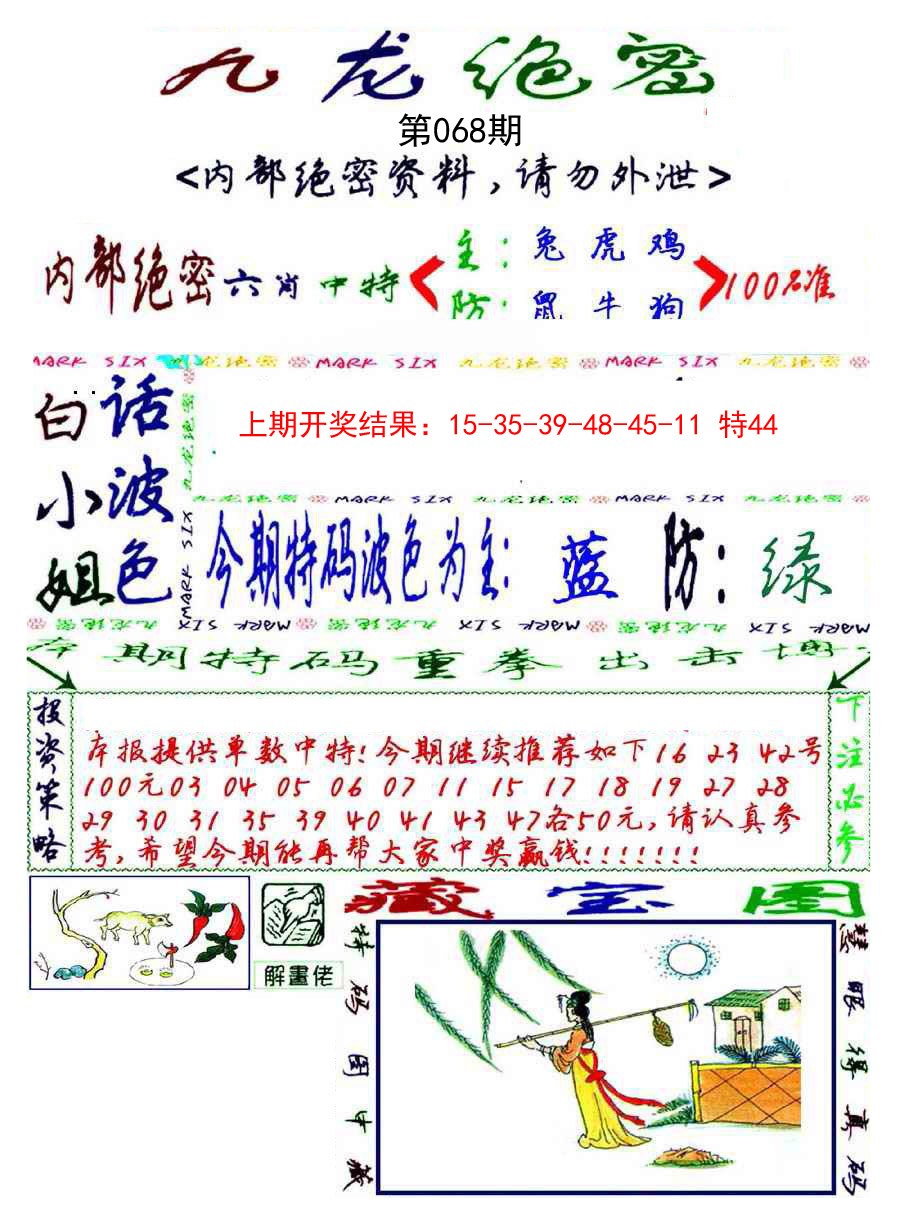 九龙绝密
第068期
<内部绝密资料,请勿外泄>
内部绝密六肖中特
主:兔虎鸡
防:鼠牛狗
100%准
MARK SIX 九龙绝密 MARK SIX 九龙绝密 MARK SIX 九龙绝密
白小姐
话波色
九龙绝密
MARK SIX
上期开奖结果：15-35-39-48-45-11 特44
九龙绝密 MARK SIX 九龙绝密 MARK SIX 九龙绝密
今期特码波色为主:蓝 防:绿
九龙绝密 MARK SIX 九龙绝密 MARK SIX 九龙绝密 MARK SIX
期特码重拳出击
投资策略
本报提供单数中特!今期继续推荐如下16 23 42号
100元03 04 05 06 07 11 15 17 18 19 27 28
29 30 31 35 39 40 41 43 47各50元,请认真参
考,希望今期能再帮大家中奖赢钱!!!!!!!
下注必参
解畫佬
藏宝图
特码图中藏
慧眼得真码